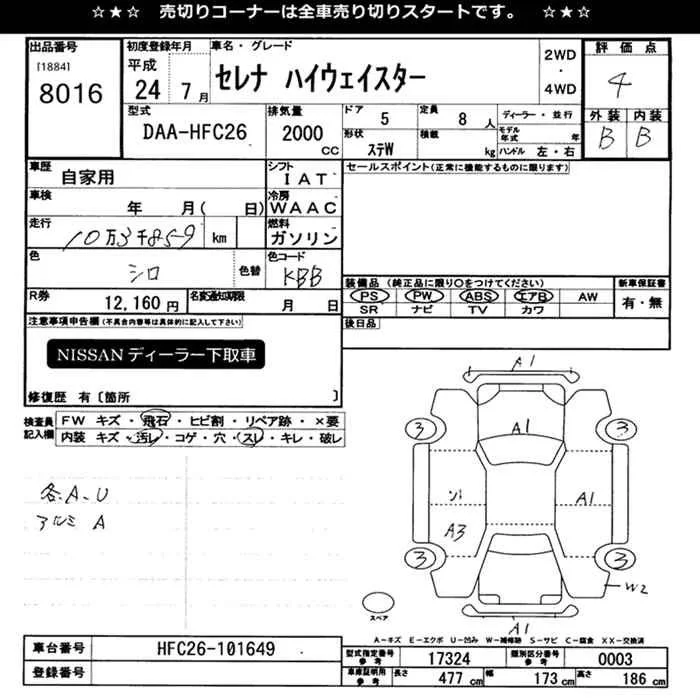 ☆★☆ 売切りコーナーは全車売り切りスタートです。 ☆★☆
出品番号
[1884]
8016
初度登録年月
平成
24年 7月
車名・グレード
セレナ ハイウェイスター
2WD
・
4WD
評価点
4
型式
DAA-HFC26
排気量
2000
CC
ドア 5
定員 8人
形状 ステW
積載 kg
ディーラー・並行
モデル年式 年
ハンドル 左・右
外装 内装
B B
車歴
自家用
シフト
IAT
セールスポイント(正常に機能するものに限ります)
車検
年 月( 日)
冷房
WAAC
走行
10万3千859 km
燃料
ガソリン
色
シロ
色替
色コード
KBB
R券
12,160円
名変通知期限
月 日
装備品(純正品に限り○をつけてください)
PS PW ABS エアB AW
SR ナビ TV カワ
新車保証書
有・無
後日品
注意事項申告欄(不具合内容等は具体的に記入して下さい)
NISSANディーラー下取車
修復歴 有〔箇所 〕
検査員
記入欄
FW キズ・飛石・ヒビ割・リペア跡・×要
内装 キズ・汚レ・コゲ・穴・スレ・キレ・破レ
各A、U
アルミ A
A1
3
3
A1
A1
A3
3
3
W2
A1
スペア
A−キズ E−エクボ U−凹み W−補修跡 S−サビ C−腐食 XX−交換済
車台番号
HFC26-101649
登録番号
型式指定番号
参考
17324
類別区分番号
参考
0003
車庫証明用
参考
長さ 477cm
幅 173cm
高さ 186cm